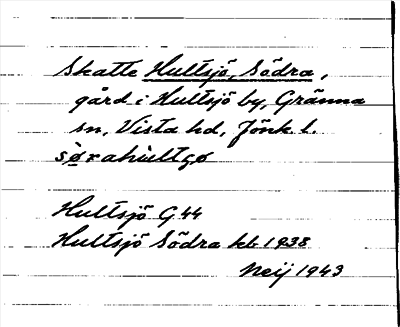 Skatte Hultsjö, Södra,
gård i Hultsjö by, Gränna
sn, Vista hd, Jönk. l.
sø̀rahùltgø
Hultsjö G 44
Hultsjö Södra kb 1938
Neij 1943